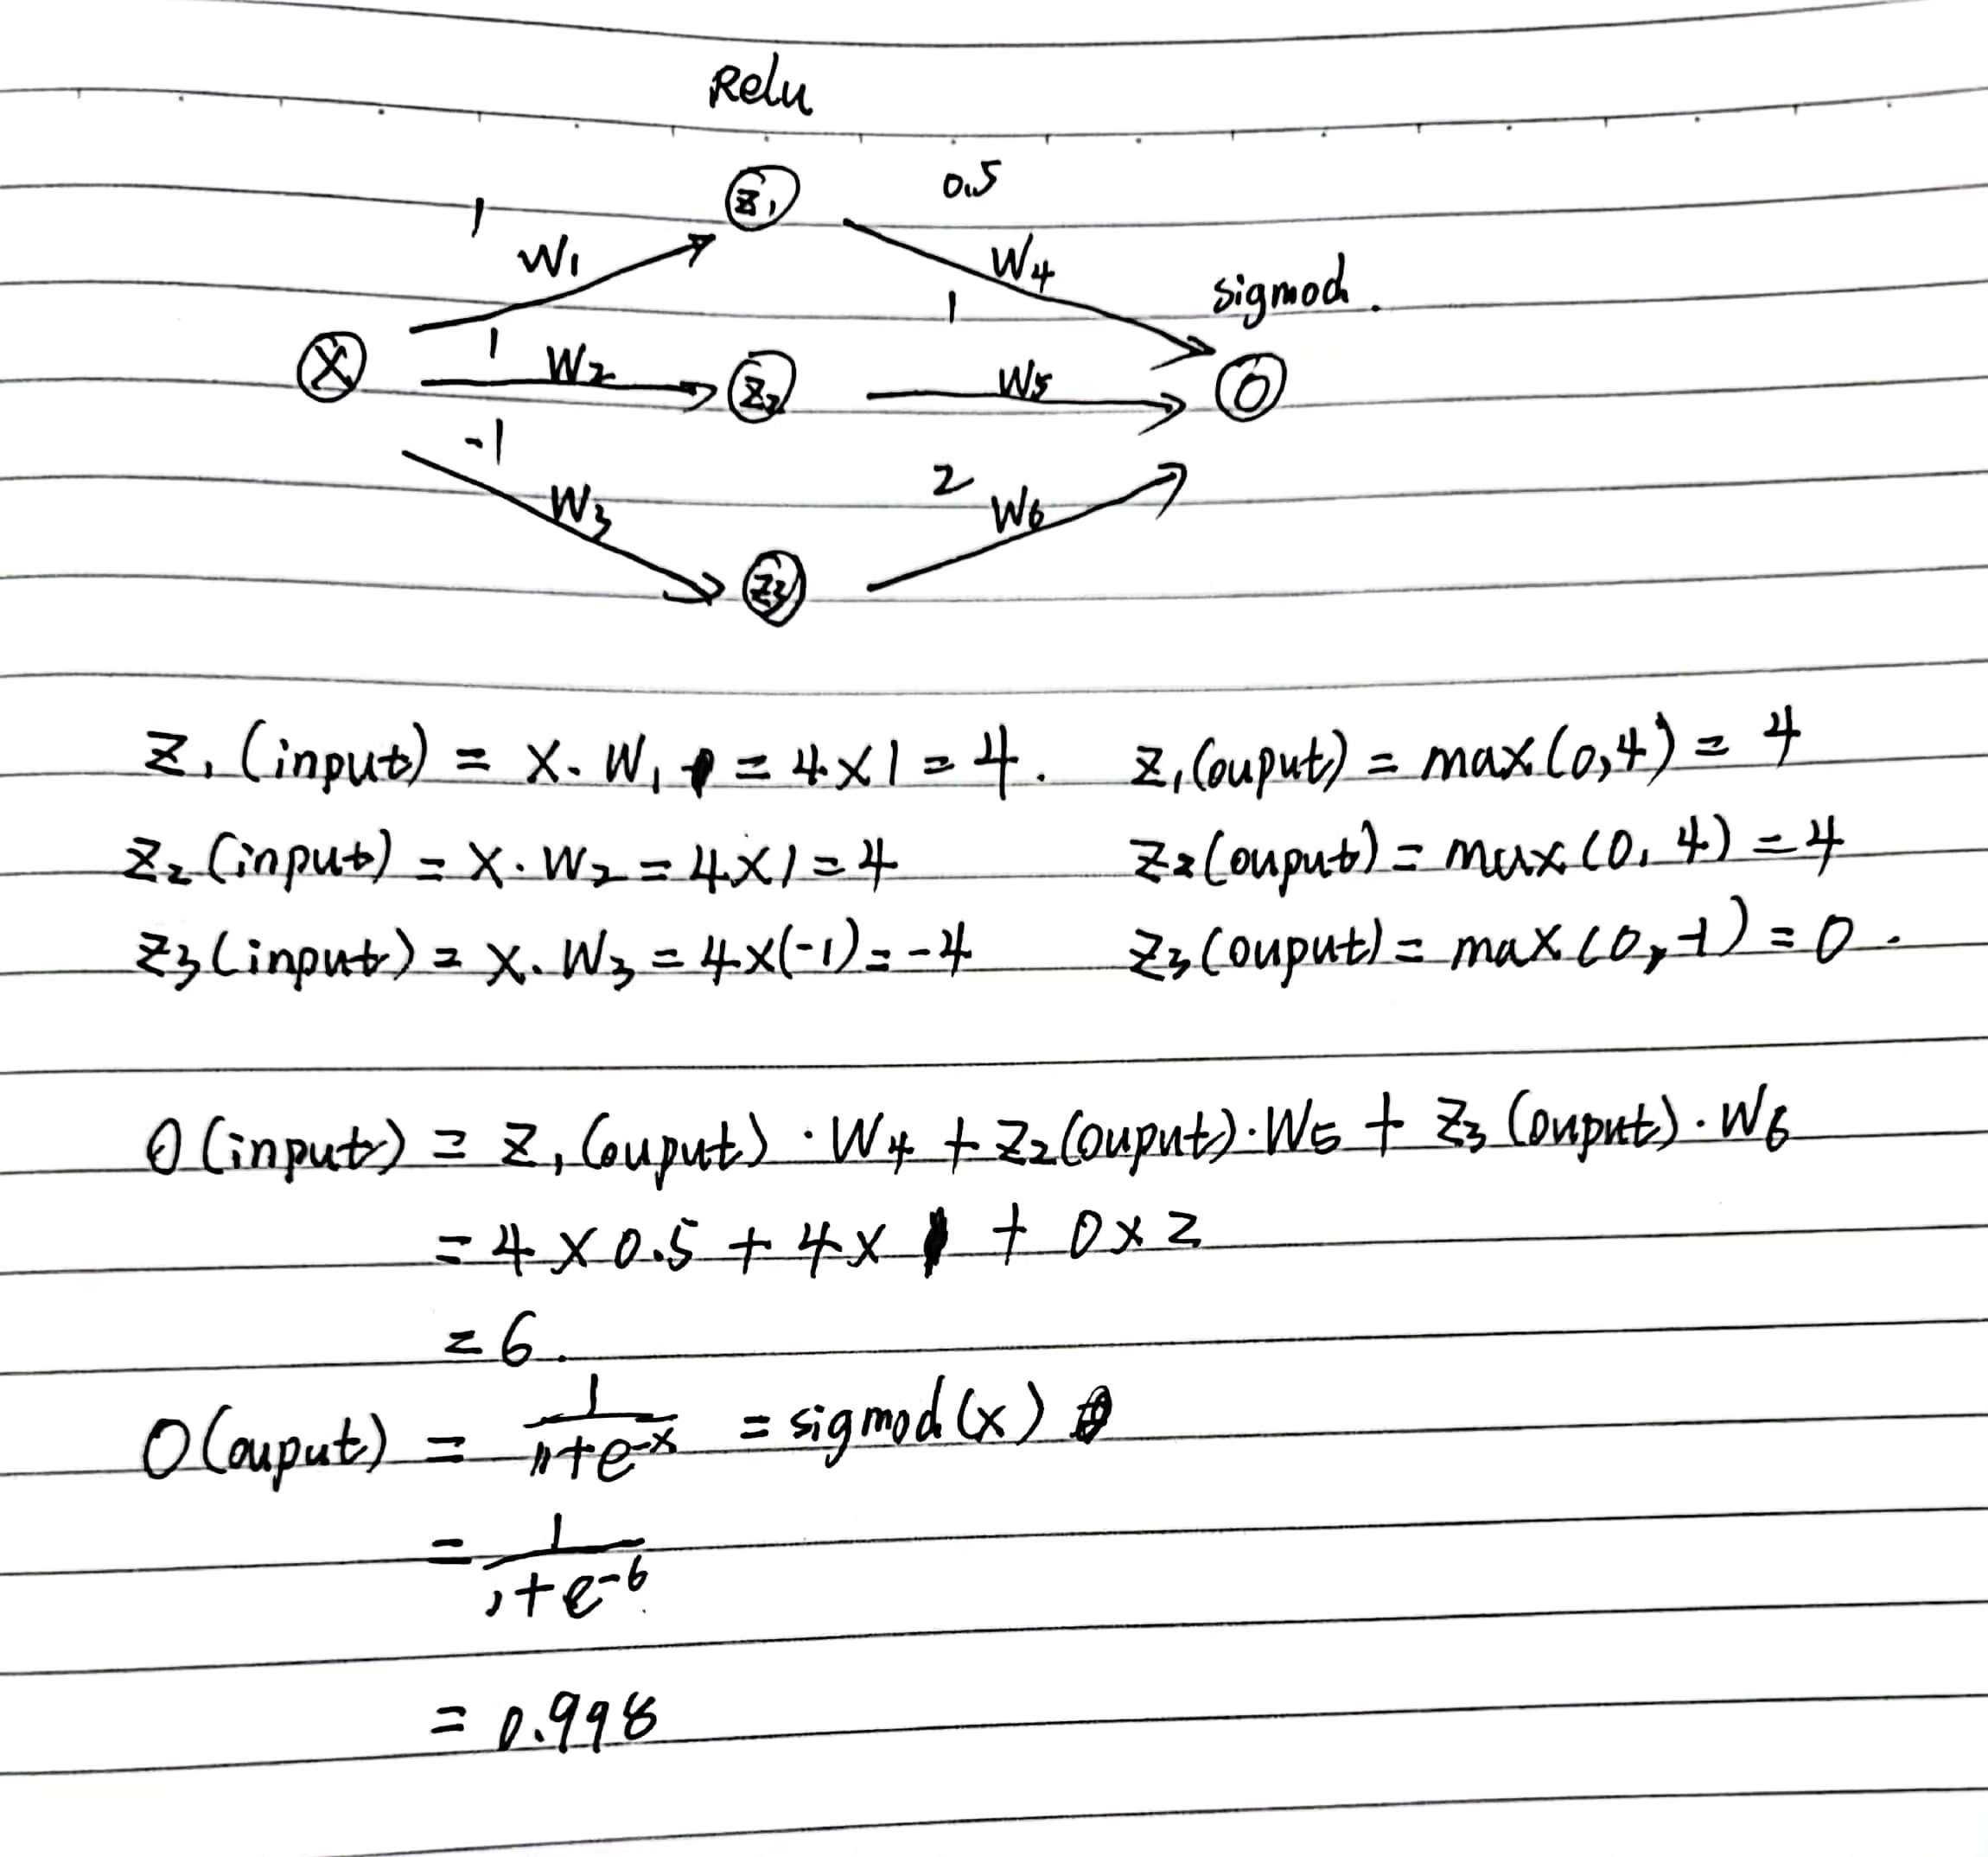 Relu
Z1
1
0.5
W1
W4
sigmod.
1
1
X
W2
Z2
W5
O
-1
2
W3
W6
Z3
Z1 (input) = X. W1 = 4x1 = 4. Z1(ouput) = max(0,4) = 4
Z2 (input) = X. W2 = 4x1 = 4 Z2(ouput) = max(0,4) = 4
Z3 (input) = X. W3 = 4x(-1) = -4 Z3(ouput) = max(0,-1) = 0.
O (input) = Z1 (ouput) · W4 + Z2(ouput)·W5 + Z3 (ouput)·W6
= 4 x 0.5 + 4 x 1 + 0 x 2
= 6.
O(ouput) = 1/(1+e^-x) = sigmod(x)
= 1/(1+e^-6)
= 0.998